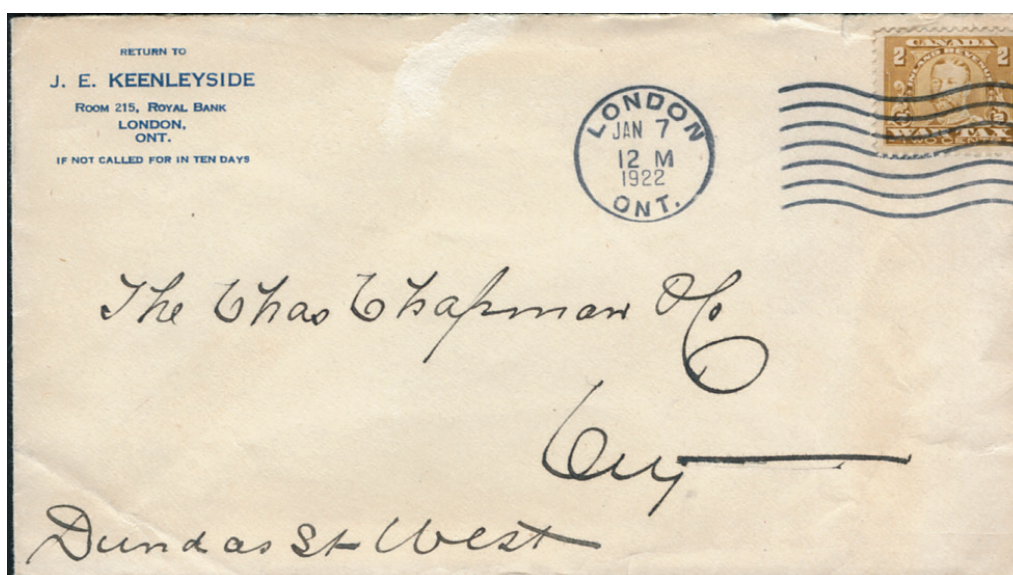 RETURN TO
J. E. KEENLEYSIDE
ROOM 215, ROYAL BANK
LONDON,
ONT.
IF NOT CALLED FOR IN TEN DAYS
LONDON
JAN 7
12 M
1922
ONT.
2 CANADA 2
INLAND REVENUE
WAR TAX
TWO CENTS
The Chas Chapman Co
City
Dundas St West